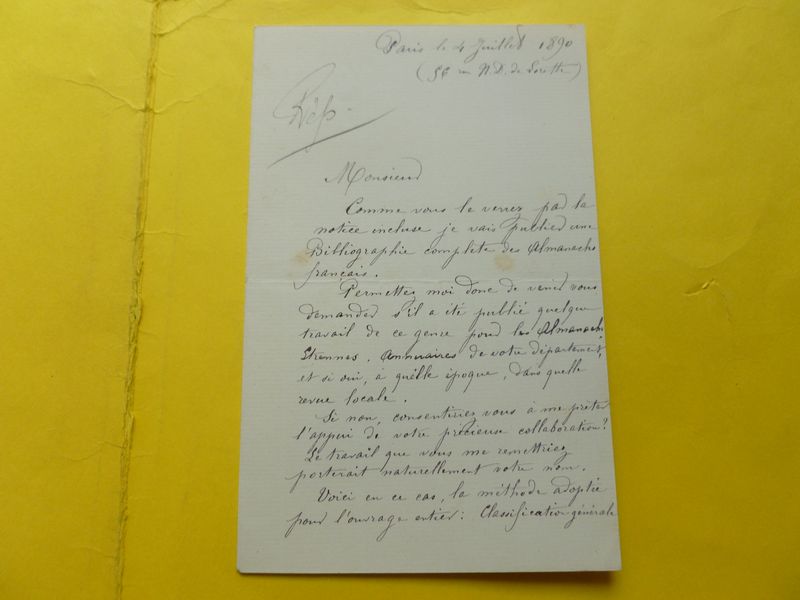 Paris le 4 Juillet 1890
(56 rue N.D. de Lorette)
Rép.
Monsieur
Comme vous le verrez par la
notice incluse je vais publier une
Bibliographie complète des Almanachs
français.
Permettez moi donc de venir vous
demander s'il a été publié quelque
travail de ce genre pour les Almanachs
Etrennes, Annuaires de votre département,
et si oui, à quelle époque, dans quelle
revue locale.
Si non, consentiriez vous à me prêter
l'appui de votre précieuse collaboration?
Le travail que vous me remettriez
porterait naturellement votre nom.
Voici en ce cas, la méthode adoptée
pour l'ouvrage entier: Classification générale